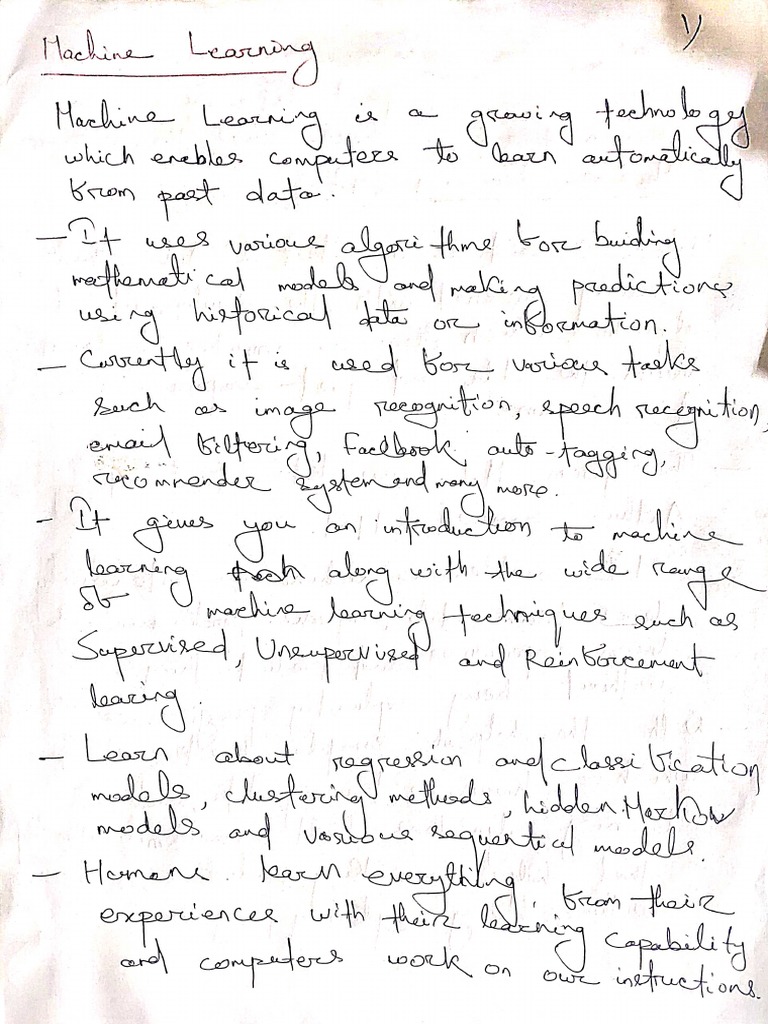 1)
Machine Learning
Machine Learning is a growing technology
which enables computers to learn automatically
from past data.
- It uses various algorithms for buiding
mathematical models and making predictions
using historical data or information.
- Currently it is used for various tasks
such as image recognition, speech recognition,
email filtering, Facebook auto-tagging,
recommender system and many more.
- It gives you an introduction to machine
learning along with the wide range
of machine learning techniques such as
Supervised, Unsupervised and Reinforcement
learing.
- Learn about regression and classification
models, clustering methods, hidden Markow
models and various sequential models.
- Humans learn everything from their
experiences with their learning capability
and computers work on our instructions.